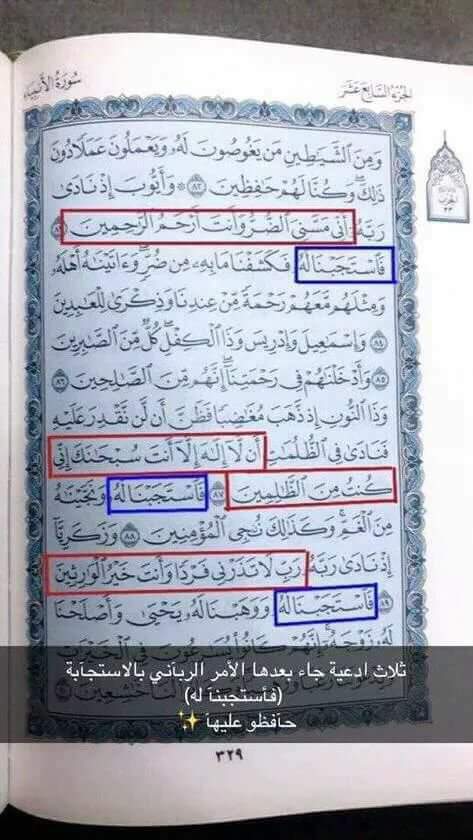 سُورَةُ الأَنبِيَاءِ
الجُزءُ السَّابِعَ عَشَرَ
وَمِنَ ٱلشَّيَٰطِينِ مَن يَغُوصُونَ لَهُۥ وَيَعْمَلُونَ عَمَلًا دُونَ
ذَٰلِكَ ۖ وَكُنَّا لَهُمْ حَٰفِظِينَ ٨٢ ۞ وَأَيُّوبَ إِذْ نَادَىٰ
رَبَّهُۥٓ أَنِّي مَسَّنِيَ ٱلضُّرُّ وَأَنتَ أَرْحَمُ ٱلرَّٰحِمِينَ ٨٣
فَٱسْتَجَبْنَا لَهُۥ فَكَشَفْنَا مَا بِهِۦ مِن ضُرٍّ ۖ وَءَاتَيْنَٰهُ أَهْلَهُۥ
وَمِثْلَهُم مَّعَهُمْ رَحْمَةً مِّنْ عِندِنَا وَذِكْرَىٰ لِلْعَٰبِدِينَ
٨٤ وَإِسْمَٰعِيلَ وَإِدْرِيسَ وَذَا ٱلْكِفْلِ ۖ كُلٌّ مِّنَ ٱلصَّٰبِرِينَ
٨٥ وَأَدْخَلْنَٰهُمْ فِي رَحْمَتِنَآ ۖ إِنَّهُم مِّنَ ٱلصَّٰلِحِينَ ٨٦
وَذَا ٱلنُّونِ إِذ ذَّهَبَ مُغَٰضِبًا فَظَنَّ أَن لَّن نَّقْدِرَ عَلَيْهِ
فَنَادَىٰ فِي ٱلظُّلُمَٰتِ أَن لَّآ إِلَٰهَ إِلَّآ أَنتَ سُبْحَٰنَكَ إِنِّي
كُنتُ مِنَ ٱلظَّٰلِمِينَ ٨٧ فَٱسْتَجَبْنَا لَهُۥ وَنَجَّيْنَٰهُ
مِنَ ٱلْغَمِّ ۚ وَكَذَٰلِكَ نُۨجِي ٱلْمُؤْمِنِينَ ٨٨ وَزَكَرِيَّآ
إِذْ نَادَىٰ رَبَّهُۥ رَبِّ لَا تَذَرْنِي فَرْدًا وَأَنتَ خَيْرُ ٱلْوَٰرِثِينَ
٨٩ فَٱسْتَجَبْنَا لَهُۥ وَوَهَبْنَا لَهُۥ يَحْيَىٰ وَأَصْلَحْنَا
لَهُۥ زَوْجَهُۥٓ ۚ إِنَّهُمْ كَانُوا۟ يُسَٰرِعُونَ فِي ٱلْخَيْرَٰتِ
ثلاث ادعية جاء بعدها الأمر الربآني بالاستجآبة
(فأستجبنآ له)
حآفظو عليهآ ✨
٣٢٩